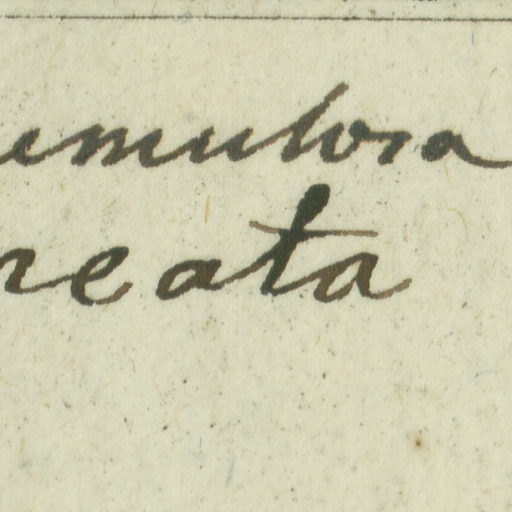 emulosa
neata